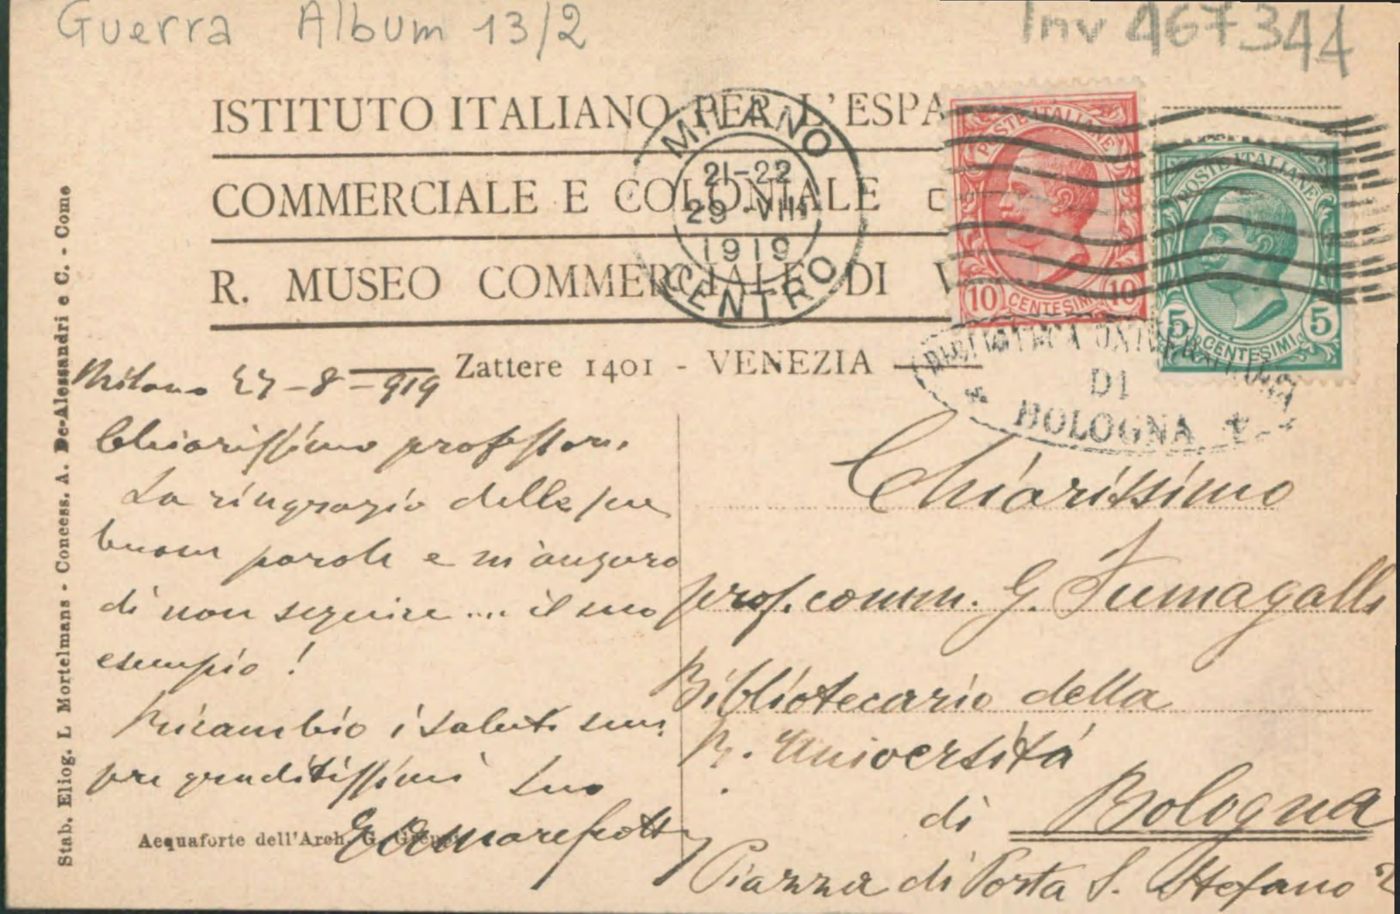 Guerra Album 13/2
Inv 467344
ISTITUTO ITALIANO PER L'ESPA
COMMERCIALE E COLONIALE
R. MUSEO COMMERCIALE DI V
Zattere 1401 - VENEZIA
MILANO
21-22
29-VIII
1919
CENTRO
POSTE ITALIANE
10 CENTESIMI 10
POSTE ITALIANE
5 CENTESIMI 5
BIBLIOTECA UNIVERSITARIA
DI
BOLOGNA
Stab. Eliog. L Mortelmans - Concess. A. De-Alessandri e C. - Como
Milano 27-8-919
Chiarissimo professore,
La ringrazio delle sue
buone parole e m'auguro
di non seguire ... il suo
esempio!
Ricambio i saluti sem
pre graditissimi Suo
Acquaforte dell'Arch. G.
Chiarissimo
prof. comm. G. Fumagalli
Bibliotecario della
R. Università
di Bologna
Piazza di Porta S. Stefano